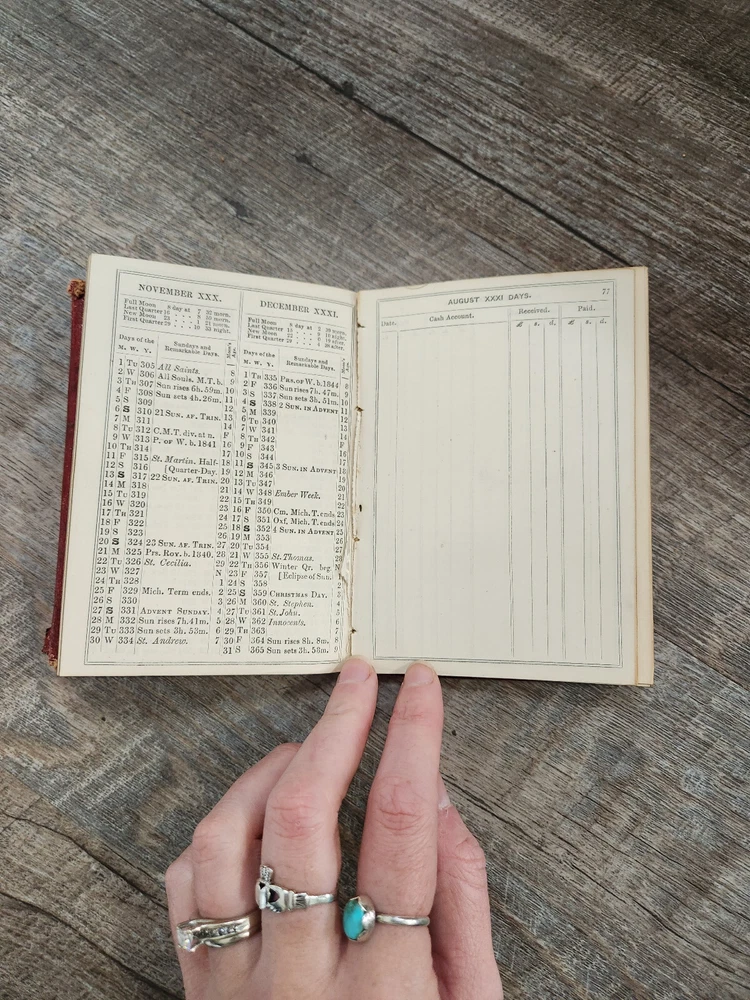 NOVEMBER XXX.
Full Moon 8 day at 7 37 morn.
Last Quarter 16
New Moon 23
First Quarter 29
Days of the
M. W. Y.
Sundays and
Remarkable Days.
Moon's
Age
1 Tu 305 All Saints. 8
2 W 306 All Souls. M.T.b. 9
3 Th 307 Sun rises 6h. 59m. 10
4 F 308 Sun sets 4h. 26m. 11
5 S 309 12
6 S 310 21 SUN. AF. TRIN. 13
7 M 311 14
8 Tu 312 C.M.T. div. at n. F
9 W 313 P. of W. b. 1841 16
10 Th 314 17
11 F 315 St. Martin. Half- 18
12 S 316 [Quarter-Day. 19
13 S 317 22 SUN. AF. TRIN. 20
14 M 318 21
15 Tu 319 22
16 W 320 23
17 Th 321 24
18 F 322 25
19 S 323 26
20 S 324 23 SUN. AF. TRIN. 27
21 M 325 Prs. Roy. b. 1840. 28
22 Tu 326 St. Cecilia. 29
23 W 327 N
24 Th 328 1
25 F 329 Mich. Term ends. 2
26 S 330 3
27 S 331 ADVENT SUNDAY. 4
28 M 332 Sun rises 7h. 41m. 5
29 Tu 333 Sun sets 3h. 53m. 6
30 W 334 St. Andrew. 7
DECEMBER XXXI.
Full Moon 8 day at
Last Quarter 15
New Moon 22
First Quarter 29
Days of the
M. W. Y.
Sundays and
Remarkable Days.
Moon's
Age
1 Th 335 Prs. of W. b. 1844 8
2 F 336 Sun rises 7h. 47m. 9
3 S 337 Sun sets 3h. 51m. 10
4 S 338 2 SUN. IN ADVENT 11
5 M 339 12
6 Tu 340 13
7 W 341 14
8 Th 342 F
9 F 343 16
10 S 344 17
11 S 345 3 SUN. IN ADVENT 18
12 M 346 19
13 Tu 347 20
14 W 348 Ember Week. 21
15 Th 349 22
16 F 350 Cm. Mich. T. ends 23
17 S 351 Oxf. Mich. T. ends 24
18 S 352 4 SUN. IN ADVENT 25
19 M 353 26
20 Tu 354 27
21 W 355 St. Thomas. 28
22 Th 356 Winter Qr. beg. N
23 F 357 [Eclipse of Sun.
24 S 358
25 S 359 CHRISTMAS DAY. 3
26 M 360 St. Stephen. 4
27 Tu 361 St. John. 5
28 W 362 Innocents. 6
29 Th 363 7
30 F 364 Sun rises 8h. 8m. 8
31 S 365 Sun sets 3h. 56m. 9
77
AUGUST XXXI DAYS.
Date. Cash Account. Received. Paid.
£ s. d. £ s. d.